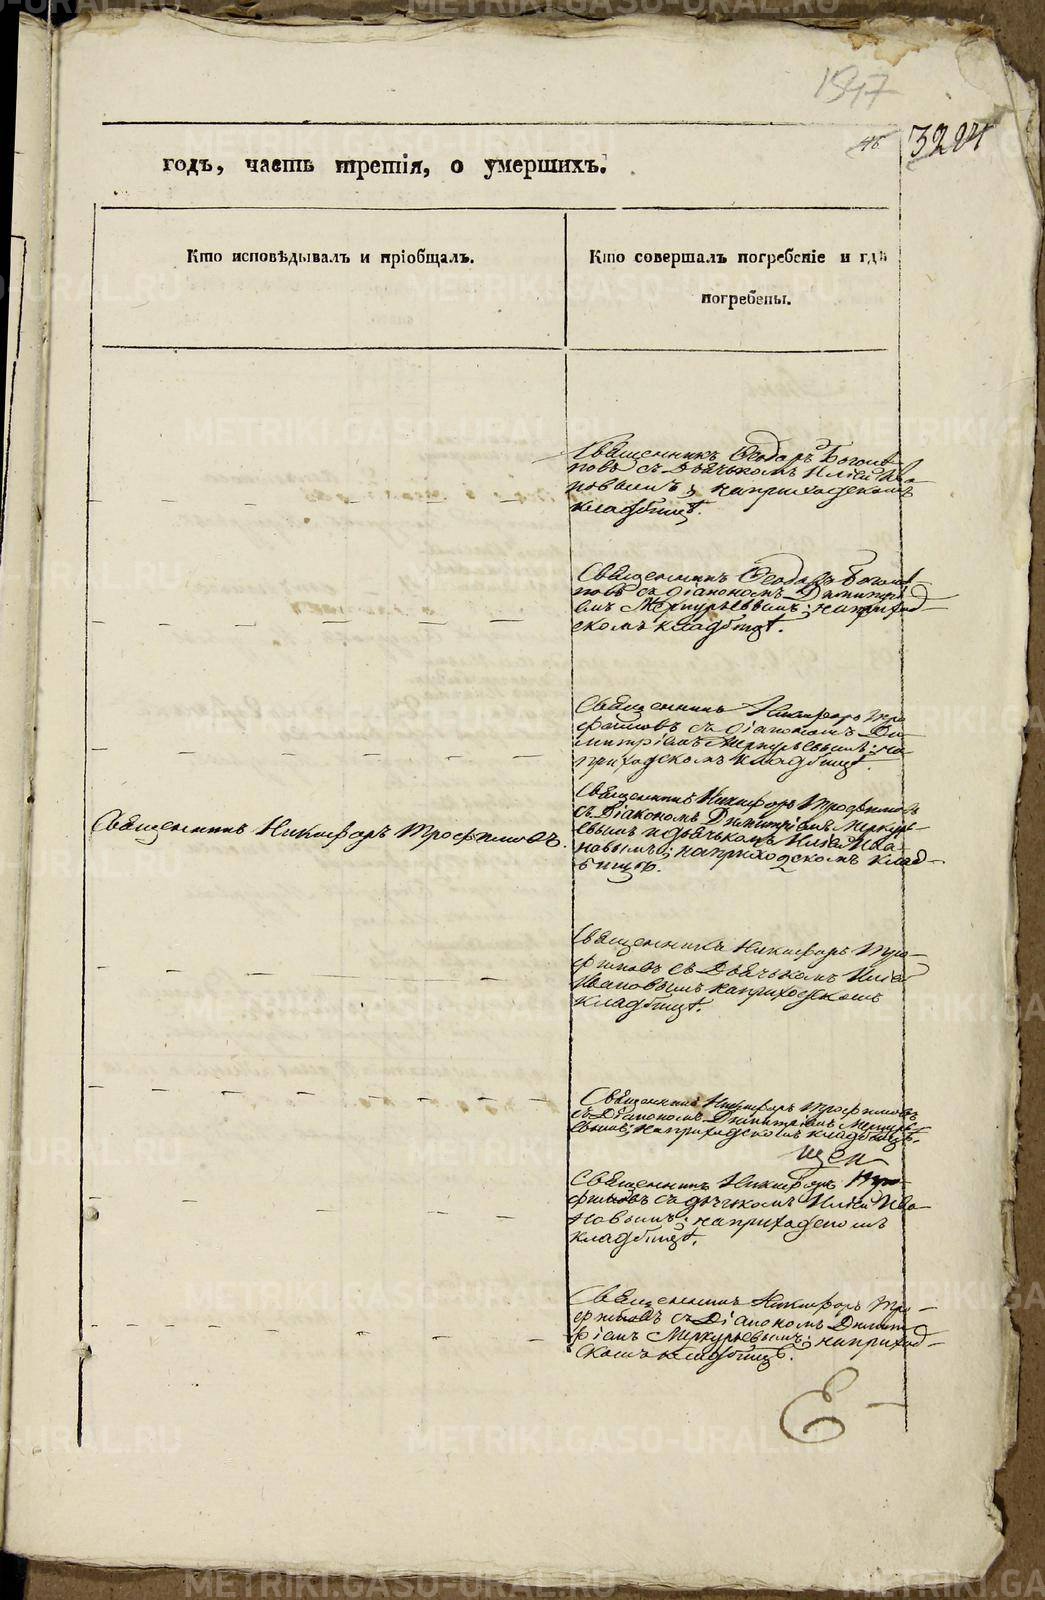 1547
46 3224
годъ, часть третія, о умершихъ.
Кто исповѣдывалъ и пріобщалъ.
Кто совершалъ погребеніе и гдѣ
погребены.
Священникъ Ѳеодоръ Боголѣ-
повъ съ Дьячькомъ Иліей Ива-
новымъ; наприходскомъ
кладбищѣ.
Священникъ Ѳеодоръ Боголѣ
повъ съ діакономъ Димитрі
емъ Меркурьевымъ; наприход-
скомъ кладбищѣ.
Священникъ Никифоръ Тро
фимовъ съ діакономъ Ди-
митріемъ Меркурьевымъ; на-
приходскомъ кладбищѣ.
Священникъ Никифоръ Трофимовъ.
Священникъ Никифоръ Трофимовъ
съ Діакономъ Димитріемъ Меркурь-
евымъ и дьячькомъ Иліей Ива-
новымъ; наприходскомъ клад-
бищѣ.
Священникъ Никифоръ Тро-
фимовъ съ Дьячькомъ Иліей
Ивановымъ наприходскомъ
кладбищѣ.
Священникъ Никифоръ Трофимовъ
съ Діакономъ Димитріемъ Меркурь-
евымъ; наприходскомъ кладбищѣ.
щен
Священникъ Никифоръ Тро-
фимовъ съ дьячкомъ Иліей Ива-
новымъ; наприходскомъ
кладбищѣ.
Священникъ Никифоръ Тро-
фимовъ съ Діакономъ Димит-
ріемъ Меркурьевымъ; наприход-
скомъ кладбищѣ.
Е-
METRIKI.GASO-URAL.RU